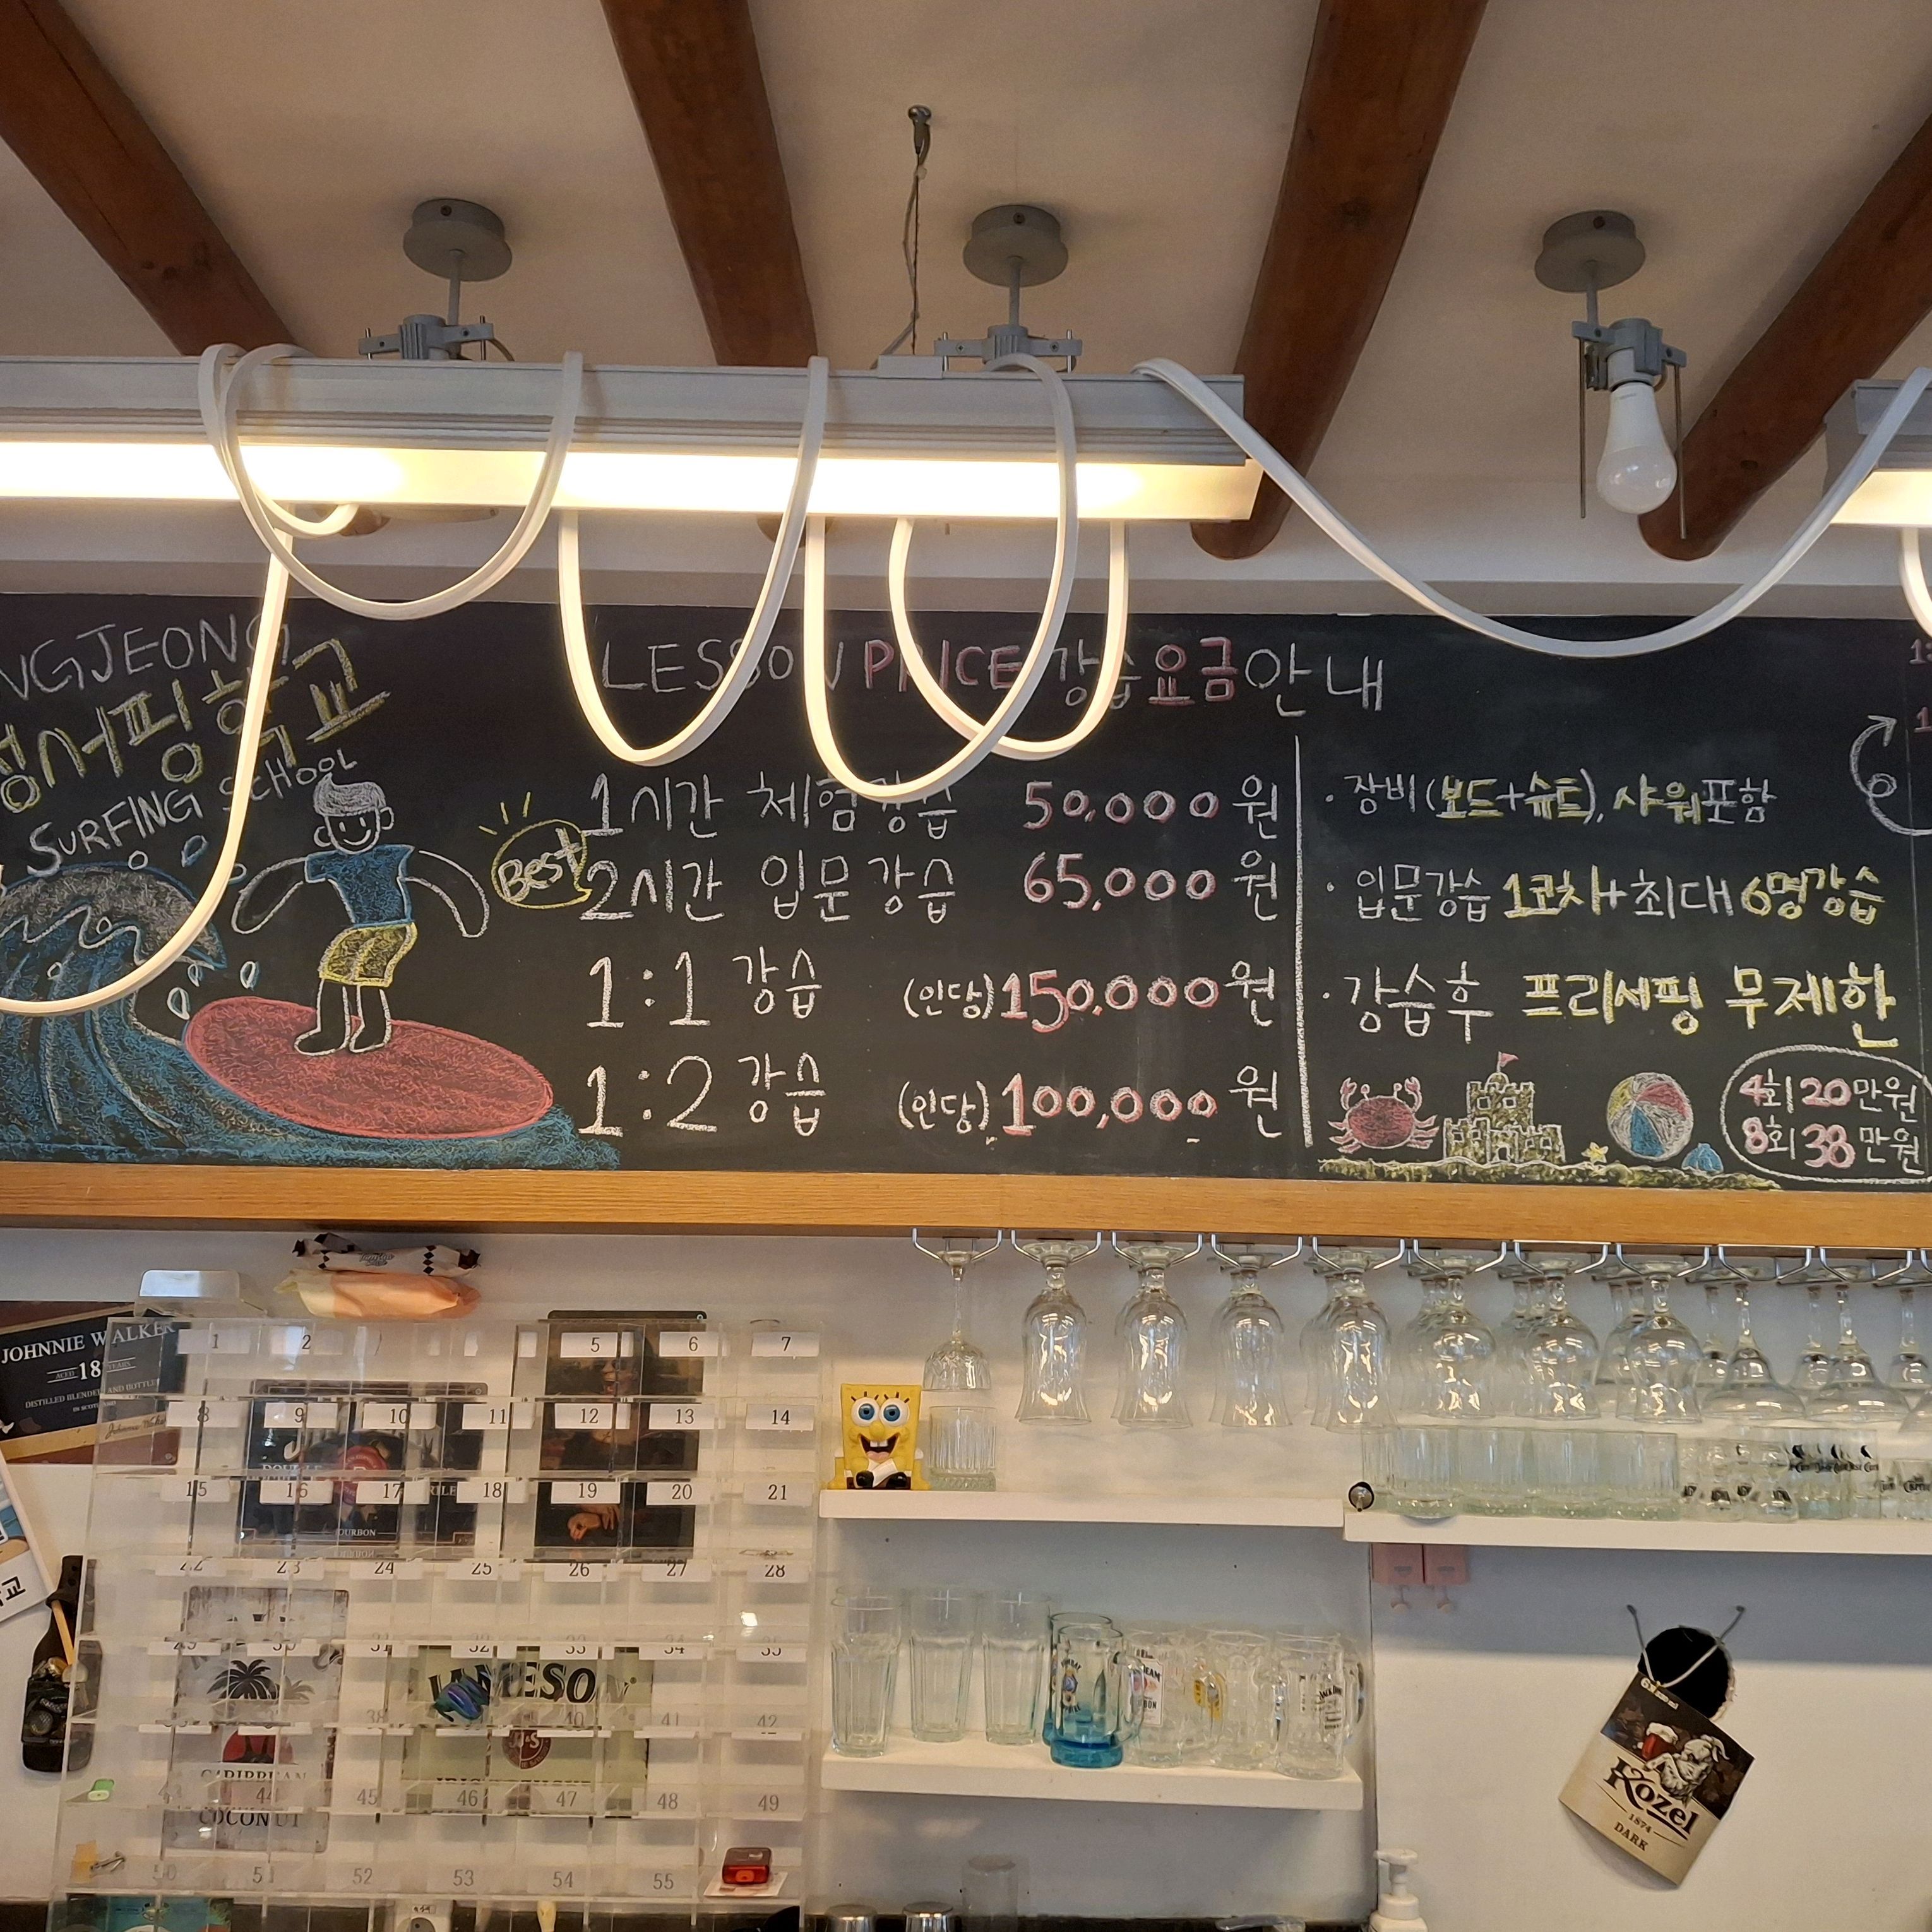 NGJEONG
서핑학교
SURFING SCHOOL
LESSON PRICE 강습요금안내
BEST
1시간 체험강습 50,000원
2시간 입문강습 65,000원
1:1 강습 (인당)150,000원
1:2 강습 (인당)100,000원
· 장비(보드+슈트), 샤워포함
· 입문강습 1코치+최대 6명강습
· 강습후 프리서핑 무제한
4회 20만원
8회 38만원
JOHNNIE WALKER
AGED 18 YEARS
DISTILLED BLENDED AND BOTTLED
IN SCOTLAND
1 2 5 6 7
8 9 10 11 12 13 14
15 16 17 18 19 20 21
BOURBON
22 23 24 25 26 27 28
29 30 31 32 33 34 35
JAMESON
38 40 41 42
CARIBBEAN
43 44 45 46 47 48 49
COCONUT
50 51 52 53 54 55
Kozel
1874
DARK